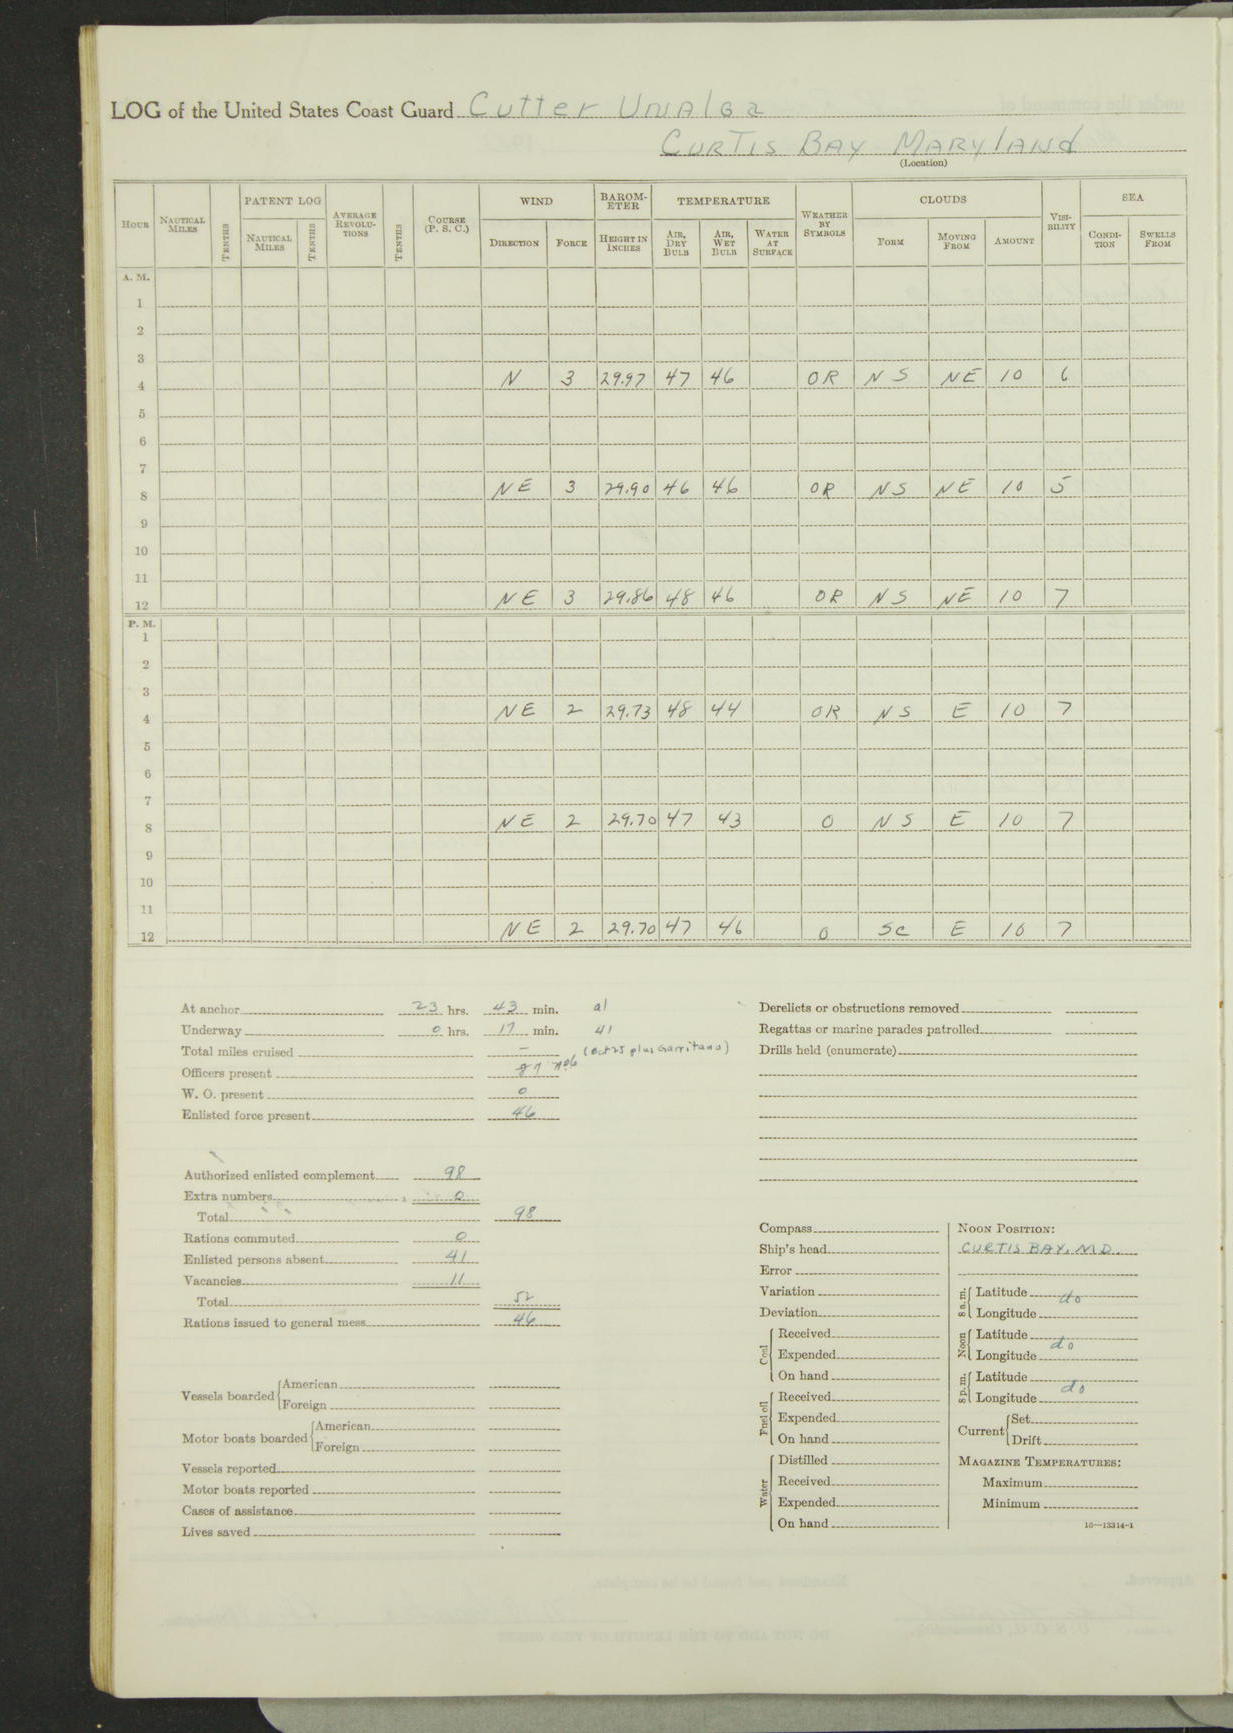 LOG of the United States Coast Guard Cutter Unalga
Curtis Bay Maryland
(Location)
HOUR NAUTICAL MILES TENTHS PATENT LOG NAUTICAL MILES TENTHS AVERAGE REVOLU-TIONS TENTHS COURSE (P. S. C.) WIND DIRECTION FORCE BAROM-ETER HEIGHT IN INCHES TEMPERATURE AIR, DRY BULB AIR, WET BULB WATER AT SURFACE WEATHER BY SYMBOLS CLOUDS FORM MOVING FROM AMOUNT VISI-BILITY SEA CONDI-TION SWELLS FROM
A. M.
1
2
3
4 N 3 29.97 47 46 OR NS NE 10 6
5
6
7
8 NE 3 29.90 46 46 OR NS NE 10 5
9
10
11
12 NE 3 29.86 48 46 OR NS NE 10 7
P. M.
1
2
3
4 NE 2 29.73 48 44 OR NS E 10 7
5
6
7
8 NE 2 29.70 47 43 O NS E 10 7
9
10
11
12 NE 2 29.70 47 46 O SC E 10 7
At anchor 23 hrs. 43 min. a1
Underway 0 hrs. 17 min. 41
Total miles cruised – (
Officers present
W. O. present 0
Enlisted force present 46
Authorized enlisted complement 98
Extra numbers 0
Total 98
Rations commuted 0
Enlisted persons absent 41
Vacancies 11
Total 52
Rations issued to general mess 46
Vessels boarded { American
Foreign
Motor boats boarded { American
Foreign
Vessels reported
Motor boats reported
Cases of assistance
Lives saved
Derelicts or obstructions removed
Regattas or marine parades patrolled
Drills held (enumerate)
Compass
Ship's head
Error
Variation
Deviation
Coal { Received
Expended
On hand
Fuel oil { Received
Expended
On hand
Water { Distilled
Received
Expended
On hand
NOON POSITION:
CURTIS BAY, MD.
8 a. m. { Latitude do
Longitude
Noon { Latitude do
Longitude
8 p. m. { Latitude do
Longitude
Current { Set
Drift
MAGAZINE TEMPERATURES:
Maximum
Minimum
16—13314-1